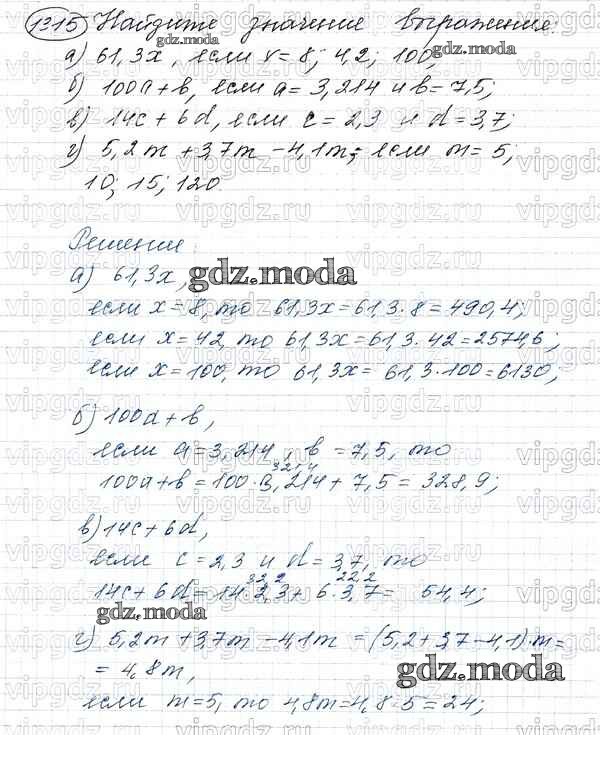 1315 Найдите значение выражение:
gdz.moda
а) 61,3x, если x = 8; 42; 100;
gdz.moda
б) 100a + b, если a = 3,214 и b = 7,5;
в) 14c + 6d, если c = 2,3 и d = 3,7;
г) 5,2m + 3,7m - 4,1m; если m = 5;
10; 15; 120
Решение:
а) 61,3x,
gdz.moda
если x = 8, то 61,3x = 61,3 · 8 = 490,4;
если x = 42, то 61,3x = 61,3 · 42 = 2574,6;
если x = 100, то 61,3x = 61,3 · 100 = 6130;
б) 100a + b,
если a = 3,214, b = 7,5, то
321,4
100a + b = 100 · 3,214 + 7,5 = 328,9;
в) 14c + 6d,
если c = 2,3 и d = 3,7, то
32,2 22,2
14c + 6d = 14 · 2,3 + 6 · 3,7 = 54,4;
gdz.moda
г) 5,2m + 3,7m - 4,1m = (5,2 + 3,7 - 4,1) · m =
= 4,8m,
gdz.moda
если m = 5, то 4,8m = 4,8 · 5 = 24;
vipgdz.ru